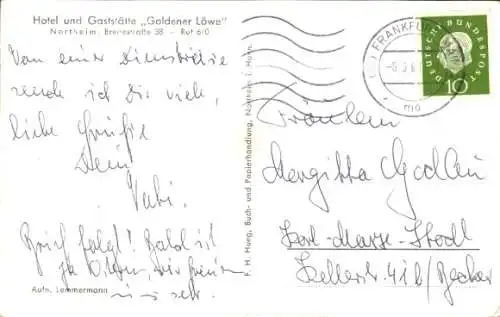 Hotel und Gaststätte „Goldener Löwe"
Northeim, Breitestraße 38 - Ruf 610
Von einer Dienstreise
sende ich Dir viele
liebe Grüße
Dein
Vati.
Brief folgt! Bald ist
ja Ostern, wir freuen
uns sehr.
Aufn. Lemmermann
F. H. Haag, Buch- und Papierhandlung, Northeim i. Hann.
FRANKFURT
DEUTSCHE BUNDESPOST
10
Fräulein
Margitta
Karl-Marx-Stadt
Zellerstr. 41 b/Becher